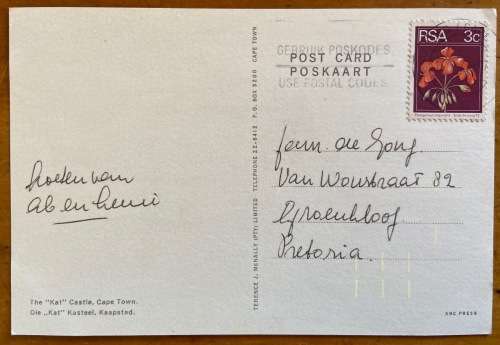 Groeten van
Ab en Henni
The "Kat" Castle, Cape Town.
Die „Kat" Kasteel, Kaapstad.
TERENCE J. MCNALLY (PTY) LIMITED TELEPHONE 22-6412 P.O. BOX 3200 CAPE TOWN
GEBRUIK POSKODES
POST CARD
POSKAART
USE POSTAL CODES
RSA 3c
fam. de Jong.
Van Woustraat 82
Groenkloof
Pretoria.
ABC PRESS